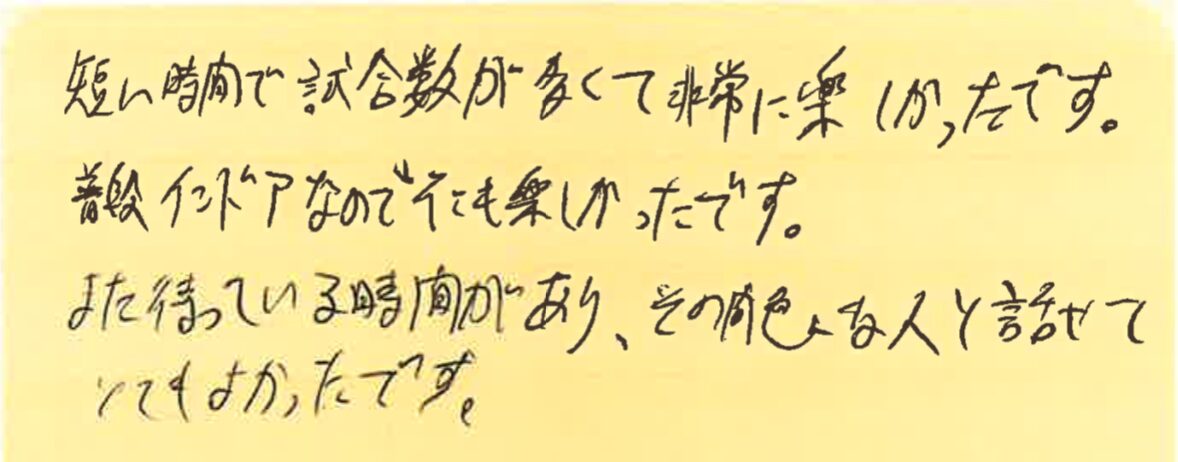 短い時間で試合数が多くて非常に楽しかったです。
普段インドアなのでそこも楽しかったです。
また待っている時間があり、その間色々な人と話せて
とてもよかったです。